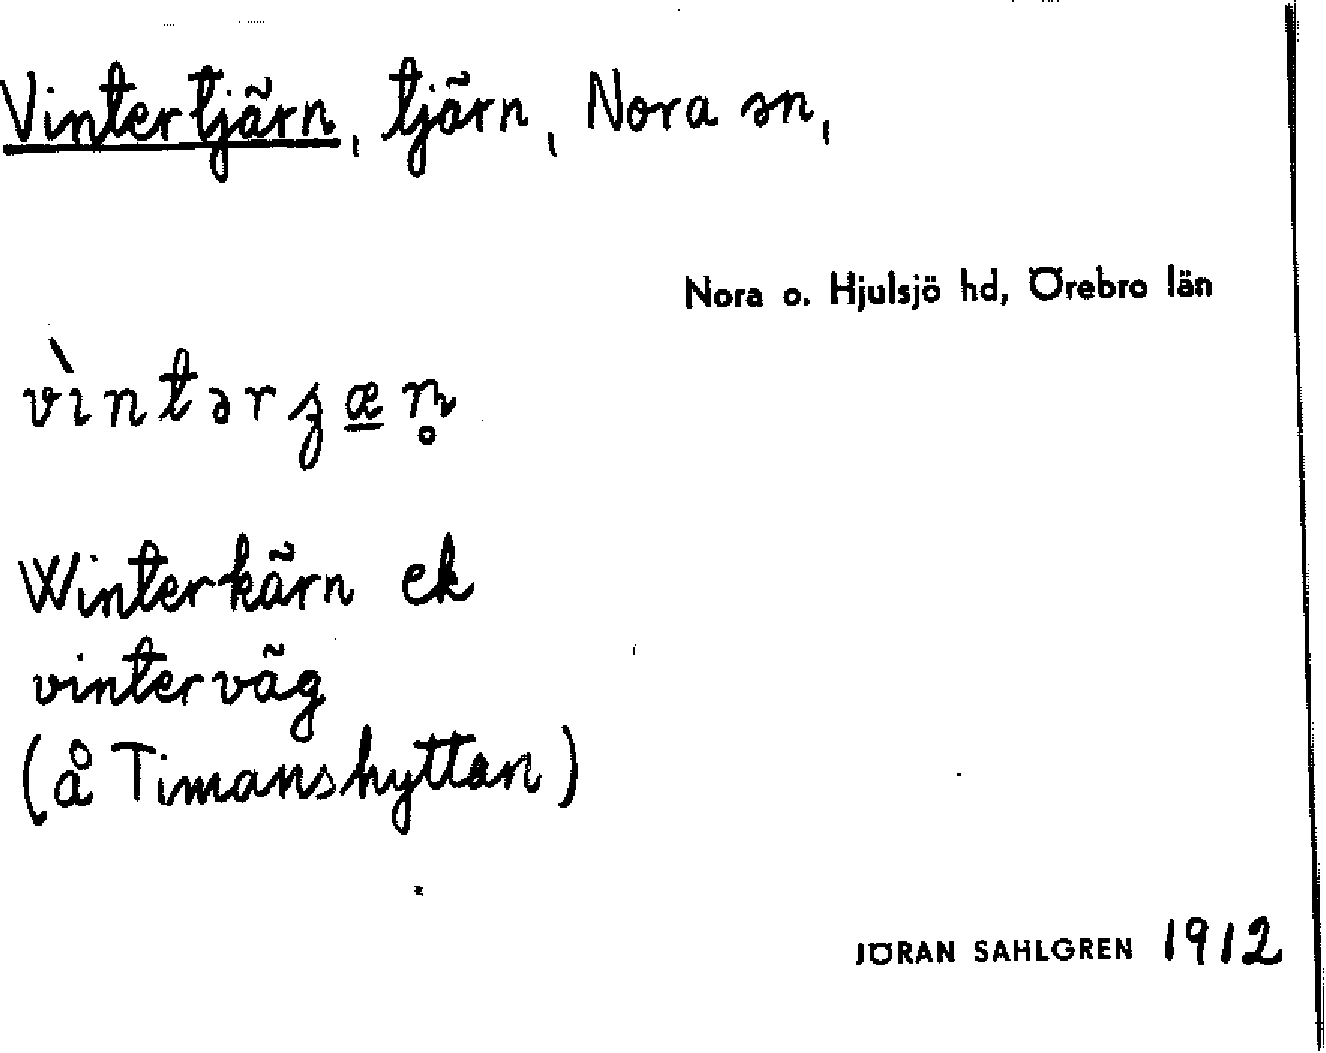 Vintertjärn, tjärn, Nora sn,
Nora o. Hjulsjö hd, Örebro län
Winterkärn ek
vinterväg
(å Timanshyttan)
JÖRAN SAHLGREN 1912